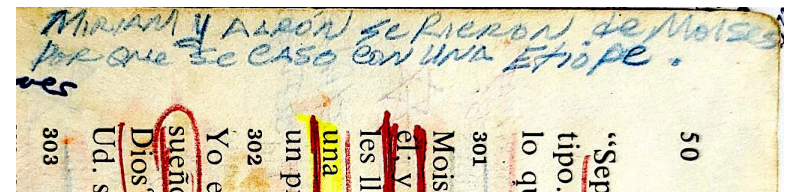 MIRIAM Y AARÓN se RIERON de MOISES
POR QUE se CASO CON UNA EtIOPE.
50
"Sep
tipo.
lo qu
301
Mois
él; y
les ll
una
un p
302
Yo e
sueño
Dios
Ud. s
303